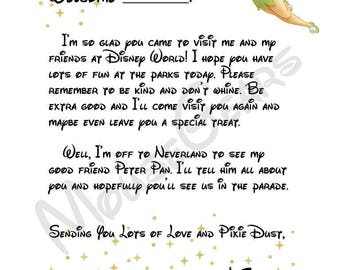 I'm so glad you came to visit me and my
friends at Disney World! I hope you have
lots of fun at the parks today. Please
remember to be kind and don't whine. Be
extra good and I'll come visit you again and
maybe even leave you a special treat.
Well, I'm off to Neverland to see my
good friend Peter Pan. I'll tell him all about
you and hopefully you'll see us in the parade.
Sending You Lots of Love and Pixie Dust,